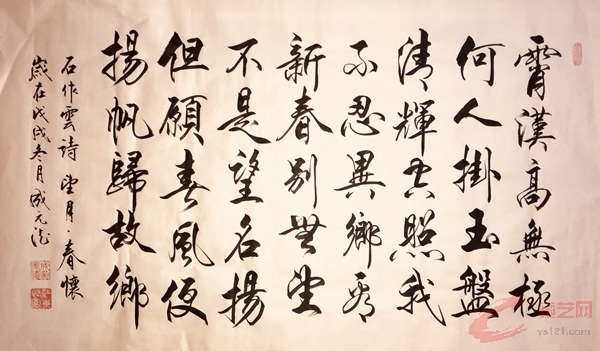 霄漢高無極
何人掛玉盤
清輝空照我
不忍異鄉看
新春別無望
不是望名揚
但願春風便
揚帆歸故鄉
石作雲詩望月·春懷
歲在戊戌冬月成元
艺网
ys121.com